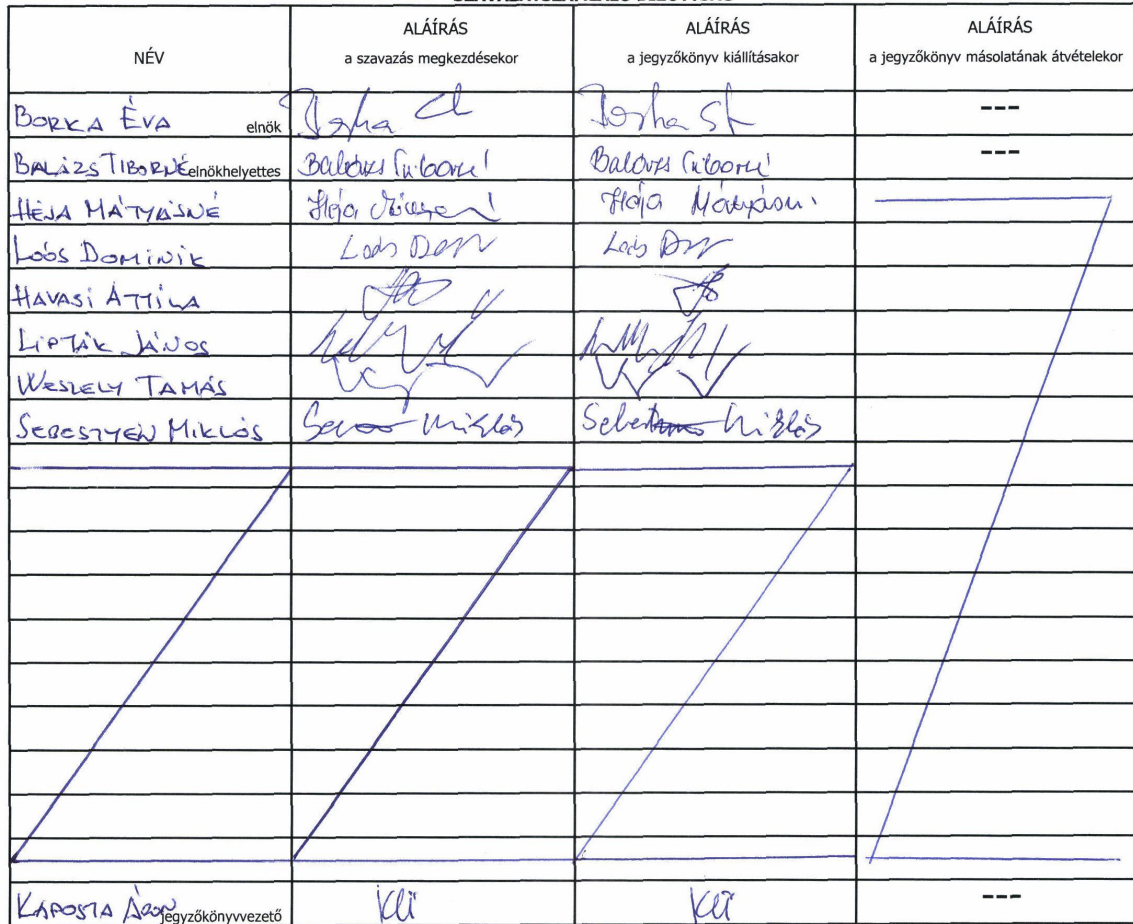 NÉV
ALÁÍRÁS
a szavazás megkezdésekor
ALÁÍRÁS
a jegyzőkönyv kiállításakor
ALÁÍRÁS
a jegyzőkönyv másolatának átvételekor
BORKA ÉVA elnök ---
BALÁZS TIBORNÉ elnökhelyettes Balázs Tiborné Balázs Tiborné ---
HÉJA MÁTYÁSNÉ Héja Mátyásné Héja Mátyásné
LOÓS DOMINIK Loós Loós
HAVASI ATTILA
LIPTÁK JÁNOS
WESZELY TAMÁS
SEBESTYÉN MIKLÓS Miklós Miklós
KAPOSTA ÁRON jegyzőkönyvvezető ---